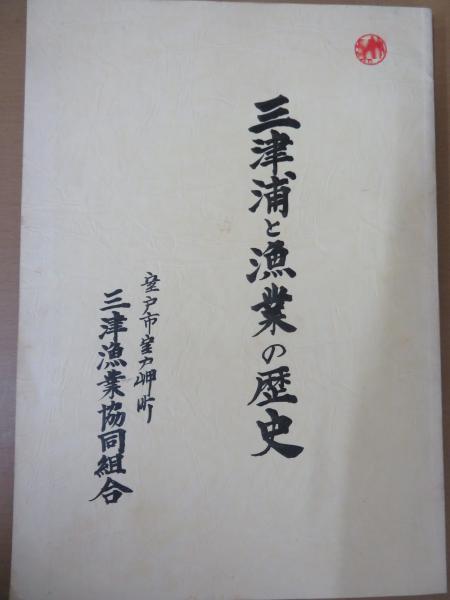 三津浦と漁業の歴史
室戸市室戸岬町
三津漁業協同組合